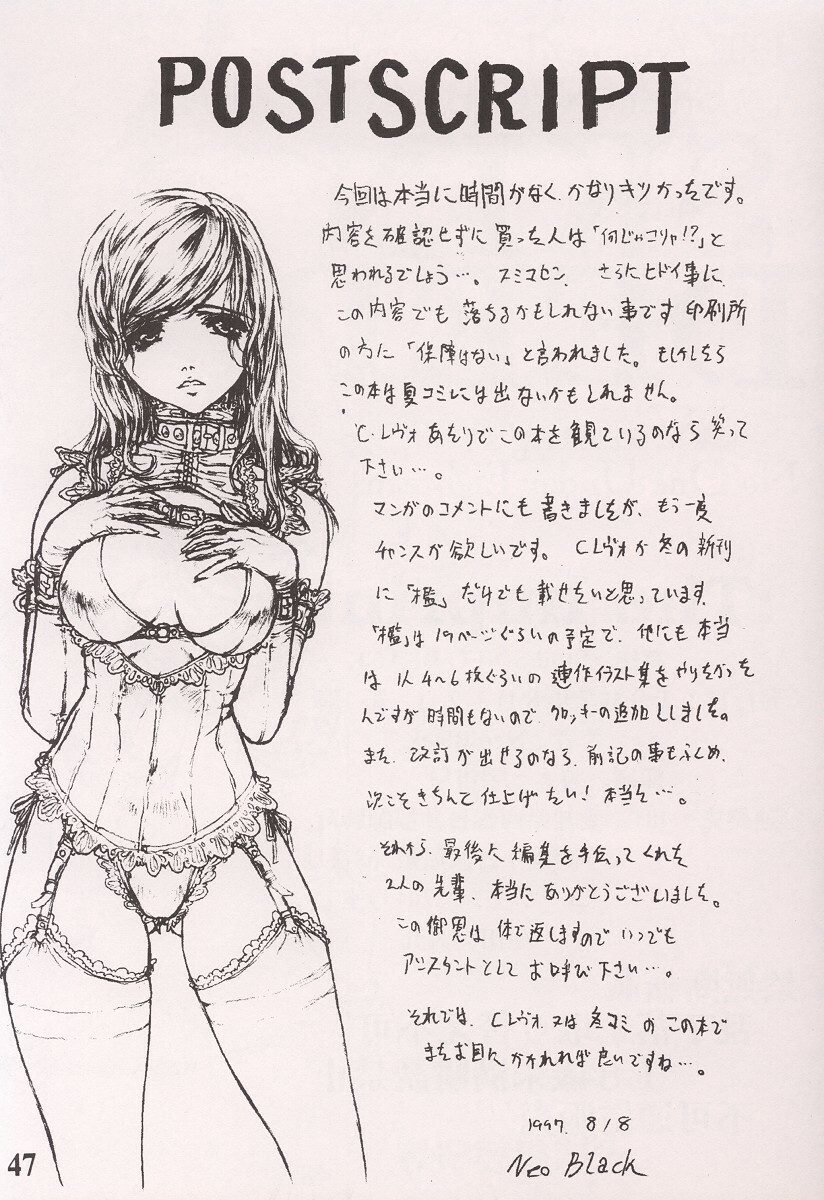 POSTSCRIPT
今回は本当に時間がなく、かなりキツかったです。
内容を確認せずに買った人は「何じゃコリャ!?」と
思われるでしょう…。スミマセン。さらにヒドイ事に
この内容でも落ちるかもしれない事です 印刷所
の方に「保障はない」と言われました。もしかしたら
この本は夏コミには出ないかもしれません。
C・レヴォあたりでこの本を観ているのなら笑って
下さい…。
マンガのコメントにも書きましたが、もう一度
チャンスが欲しいです。Cレヴォか冬の新刊
に「檻」だけでも載せたいと思っています。
「檻」は19ページぐらいの予定で、他にも本当
は1人4〜6枚ぐらいの連作イラスト集をやりたかった
んですが時間もないので、クロッキーの追加にしました。
また、改訂が出せるのなら、前記の事もふくめ、
次こそきちんと仕上げたい!本当に…。
それから、最後に編集を手伝ってくれた
2人の先輩、本当にありがとうございました。
この御恩は体で返しますのでいつでも
アシスタントとしてお呼び下さい…。
それでは、Cレヴォ、又は冬コミのこの本で
またお目にかかれれば良いですね…。
1997. 8/8
Neo Black
47